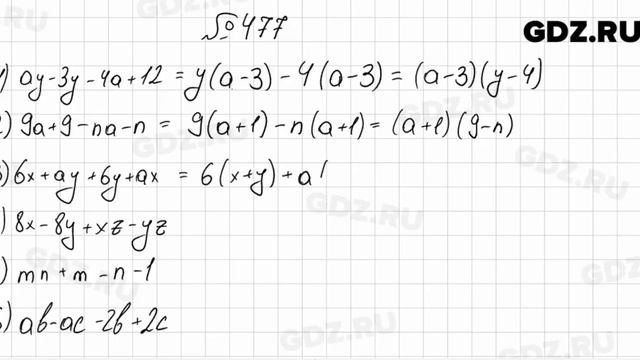 №477
GDZ.RU
1) ay-3y-4a+12 = y(a-3)-4(a-3) = (a-3)(y-4)
2) 9a+9-na-n = 9(a+1)-n(a+1) = (a+1)(9-n)
3) 6x+ay+6y+ax = 6(x+y)+a(
) 8x-8y+xz-yz
) mn+m-n-1
) ab-ac-2b+2c
GDZ.RU
GDZ.RU
GDZ.RU
GDZ.RU
GDZ.RU
GDZ.RU
GDZ.RU